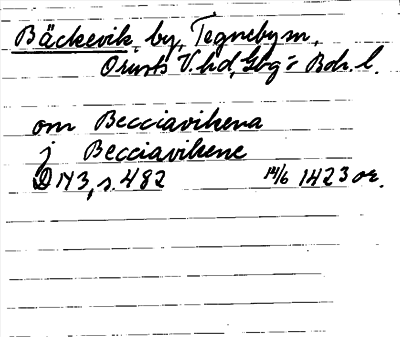 Bäckevik, by, Tegneby sn,
Orusts V. hd, Gbg's Boh. l.
om Becciavikena
j Becciavikene
DN 3, s. 482 14/6 1423 or.